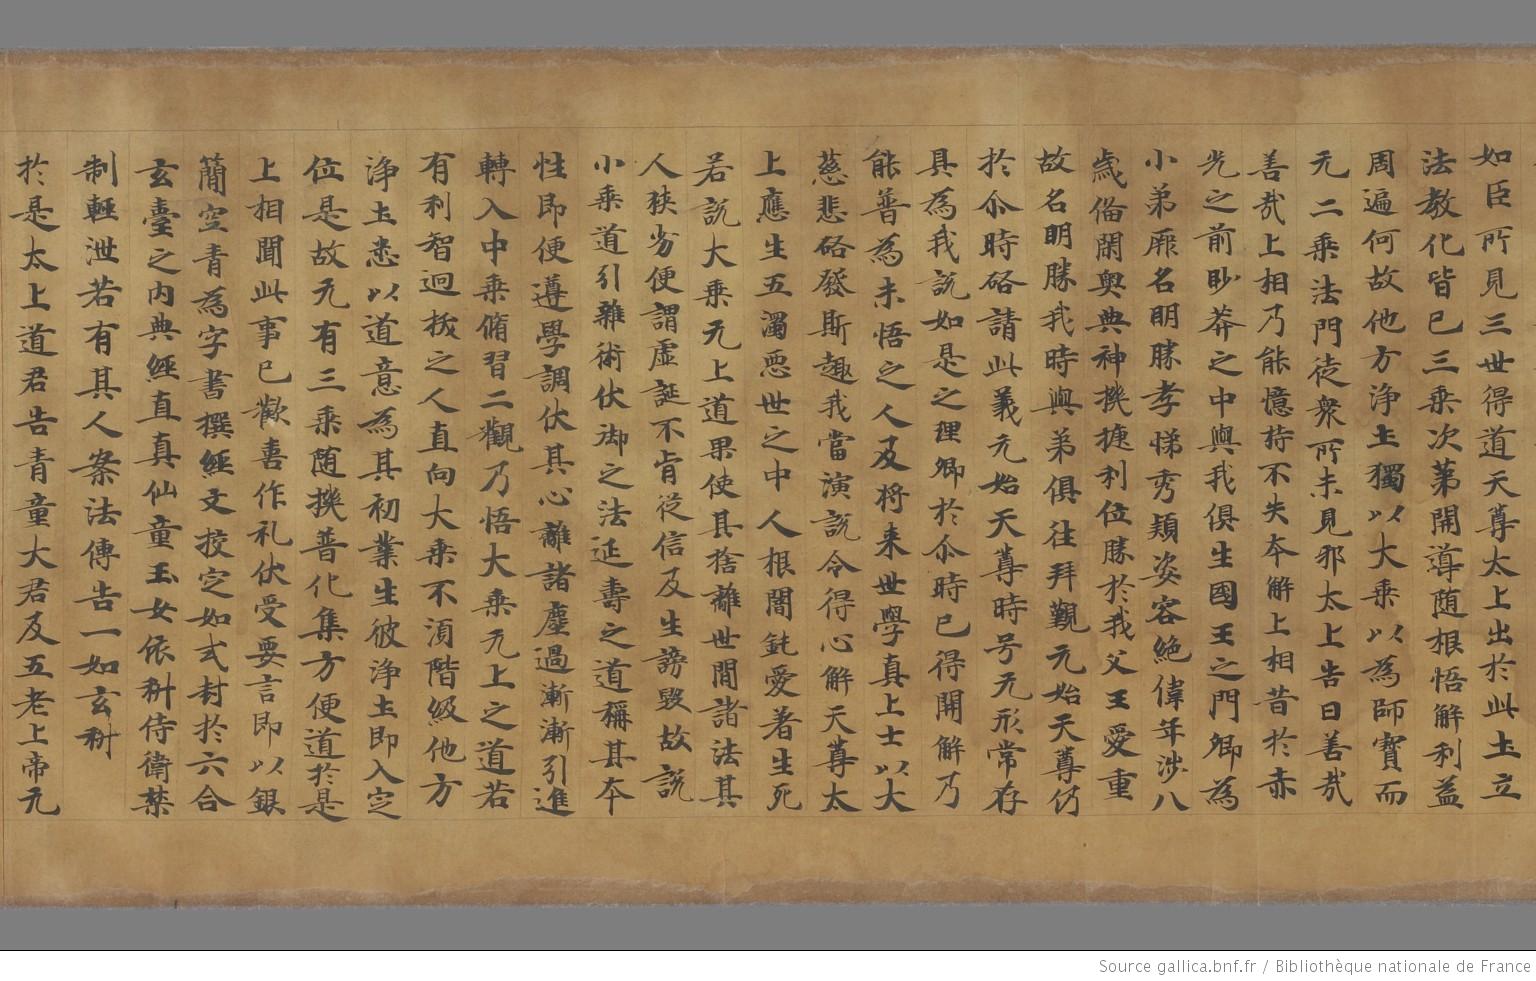 如臣所見三世得道天尊太上出於此土立
法教化皆已三乘次第開導随根悟解利益
周遍何故他方浄土獨以大乘以為師寶而
无二乘法門徒衆所未見邪太上告曰善哉
善哉上相乃能憶持不失夲解上相昔於赤
光之前眇莽之中與我俱生國王之門卿為
小弟厥名明勝孝悌秀穎姿容絶偉年涉八
歳俻閑奥典神機捷利位勝於我父王愛重
故名明勝我時與弟俱往拜覲元始天尊仍
於尒時硌請此義元始天尊時号无形常存
具為我說如是之理卿於尒時已得開解乃
能普為未悟之人及将来世學真上士以大
慈悲硌發斯趣我當演說令得心解天尊太
上應生五濁惡世之中人根闇鈍愛著生死
若說大乘无上道果使其捨離世間諸法其
人狹劣便謂虛誕不肯従信及生謗毀故說
小乘道引雜術伏御之法延壽之道稱其夲
性即便遵學調伏其心離諸塵過漸漸引進
轉入中乘脩習二觀乃悟大乘无上之道若
有利智迥拔之人直向大乘不湏階級他方
浄土悉以道意為其初業生彼浄土即入定
位是故元有三乘随機普化集方便道於是
上相聞此事已歡喜作礼伏受要言即以銀
簡空青為字書撰經文挍定如式封於六合
玄臺之内典經直真仙童玉女依科侍衛禁
制輕泄若有其人案法傳告一如玄科
於是太上道君告青童大君及五老上帝元
Source gallica.bnf.fr / Bibliothèque nationale de France